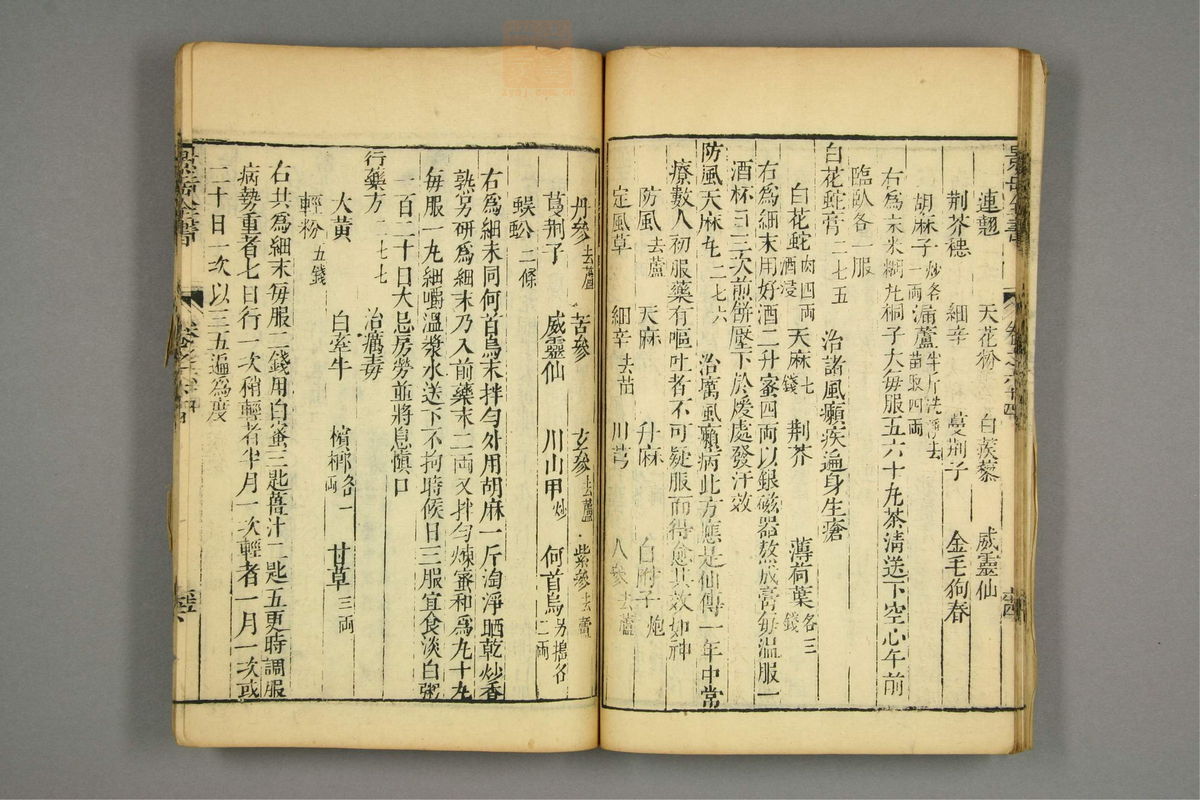 連翹 天花粉 白蒺藜 威靈仙
荆芥穗 細辛 蔓荆子 金毛狗脊
胡麻子炒各一両 漏蘆半斤洗淨去苗取四両
右為末米糊丸桐子大每服五六十丸茶清送下空心午前
臨臥各一服
白花蛇膏二七五 治諸風癩疾遍身生瘡
白花蛇肉四両酒浸 天麻七錢 荆芥 薄荷葉各三錢
右為細末用好酒二升蜜四両以銀磁器熬成膏每温服一
酒杯日三次煎餅壓下於煖處發汗效
防風天麻丸二七六 治厲風癩病此方應是仙傳一年中常
療數人初服藥有嘔吐者不可疑服而得愈其效如神
防風去蘆 天麻 升麻 白附子炮
定風草 細辛去苗 川芎 人參去蘆
丹參去蘆 苦參 玄參去蘆 紫參去蘆
蔓荆子 威靈仙 川山甲炒 何首烏另搗各二両
蜈蚣二條
右為細末同何首烏末拌勻外用胡麻一斤淘淨晒乾炒香
熟另研為細末乃入前藥末二両又拌勻煉蜜和為九十丸
每服一丸細嚼溫漿水送下不拘時候日三服宜食淡白粥
一百二十日大忌房勞並將息慎口
行藥方二七七 治癘毒
大黃 白牽牛 檳榔各一両 甘草三両
輕粉五錢
右共為細末每服二錢用白蜜三匙薑汁二匙五更時調服
病勢重者七日行一次稍輕者半月一次輕者一月一次或
二十日一次以三五遍為度